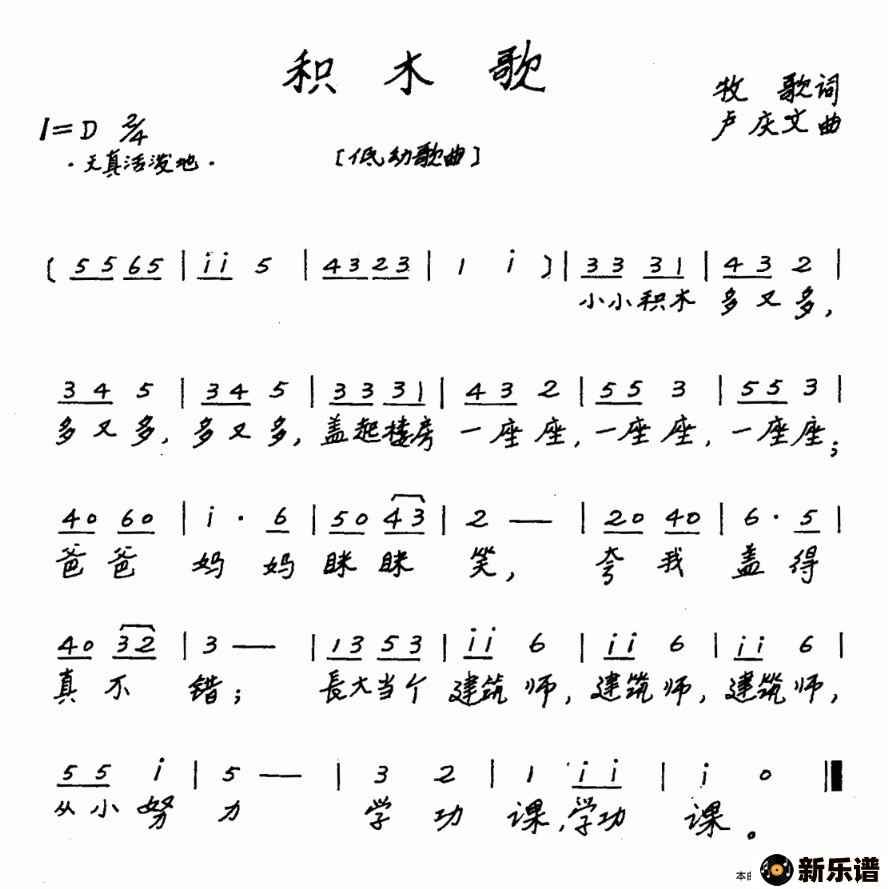 积木歌
牧歌词
1=D 2/4
卢庆文曲
·天真活泼地·
[低幼歌曲]
( 5 5 6 5 | i i 5 | 4 3 2 3 | 1 i ) | 3 3 3 1 | 4 3 2 |
小小积木 多又多,
3 4 5 | 3 4 5 | 3 3 3 1 | 4 3 2 | 5 5 3 | 5 5 3 |
多又多, 多又多, 盖起楼房 一座座, 一座座, 一座座;
4 0 6 0 | i · 6 | 5 0 4 3 | 2 — | 2 0 4 0 | 6 · 5 |
爸爸 妈妈 眯眯 笑, 夸我 盖得
4 0 3 2 | 3 — | 1 3 5 3 | i i 6 | i i 6 | i i 6 |
真不 错; 長大当个 建筑师, 建筑师, 建筑师,
5 5 i | 5 — | 3 2 | 1 i i | i 0
从小努 力 学功 课,学功 课。
本曲
新乐谱